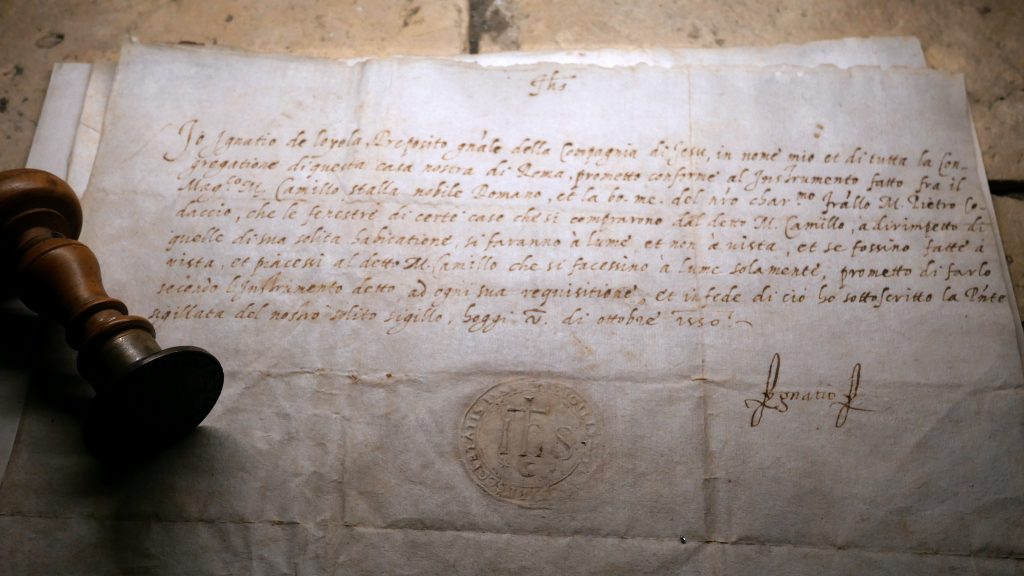 Jhs
Io Ignatio de loyola, Preposito gnãle della Compagnia di Jesu, in nome mio et di tutta la Con-
gregatione di questa casa nostra di Roma, prometto conforme al Instrumento fatto fra il
Mag.co M. Camillo stalla nobile Romano, et la bo. me. del nr̃o char.mo frallo M. Pietro Co-
daccio, che le fenestre di certe case che si comprarono dal detto M. Camillo, a dirimpetto di
quelle di sua solita habitatione, si faranno à lume et non à vista, et se fossino fatte à
vista, et piacessi al detto M. Camillo che si facessino à lume solamente, prometto di farlo
secondo l'Instrumento detto ad ogni sua requisitione, et in fede di ciò ho sottoscritto la Pñte
sigillata del nostro solito sigillo, hoggi V. di ottobre 1550.
Ignatio
IHS